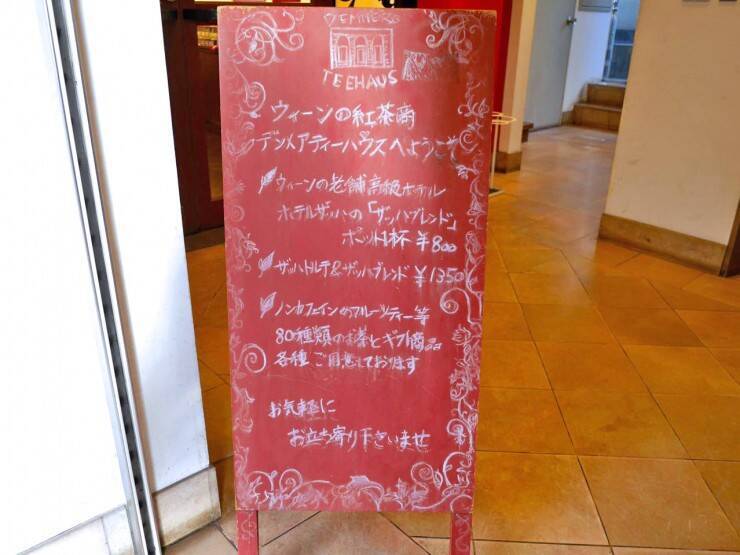 DEMMERS
TEEHAUS
ウィーンの紅茶商
デンメアティーハウスへようこそ
ウィーンの老舗高級ホテル
ホテルザッハの「ザッハブレンド」
ポット1杯 ¥800
ザッハトルテ&ザッハブレンド ¥1350
ノンカフェインのフルーツティー等
80種類のお茶とギフト商品
各種ご用意しております
お気軽に
お立ち寄り下さいませ